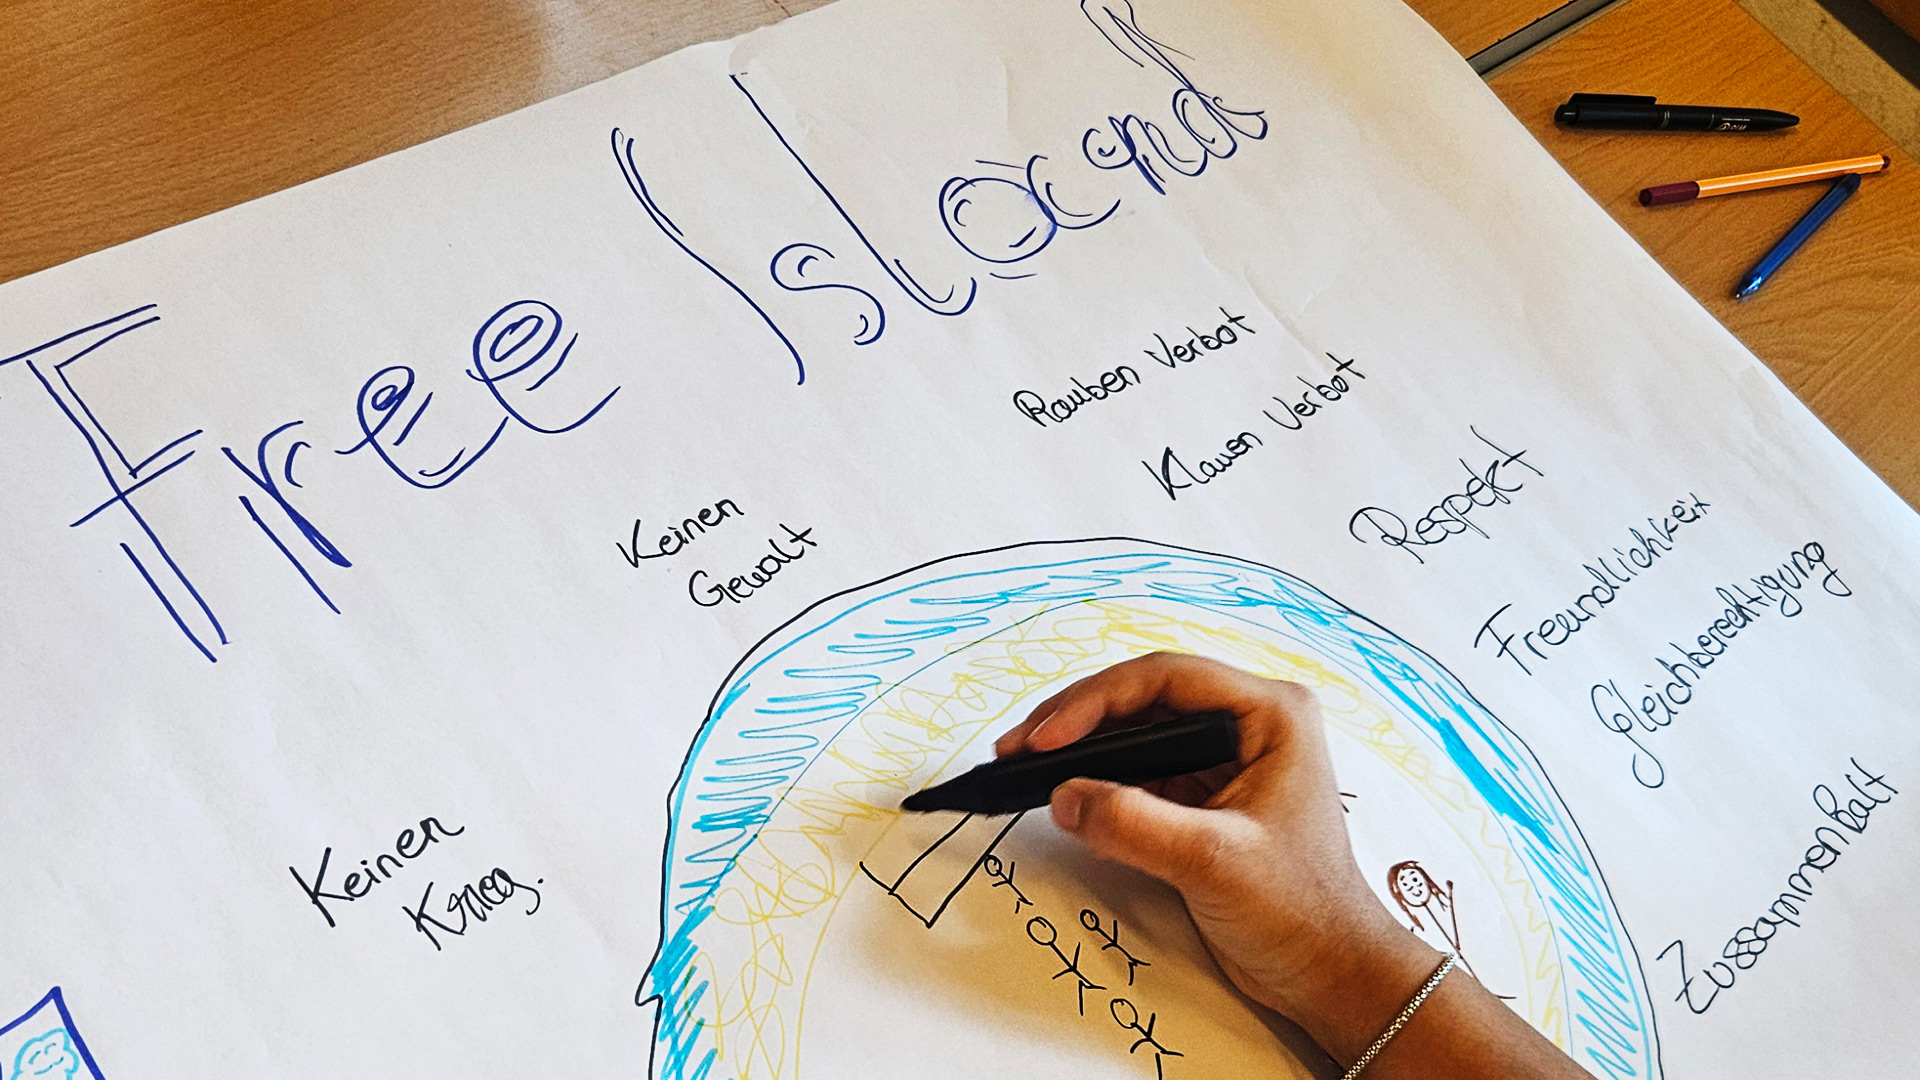 Free Island
Rauben Verbot
Klauen Verbot
Keinen
Gewalt
Respekt
Freundlichkeit
Gleichberechtigung
Keinen
Krieg.
Zussammenhalt